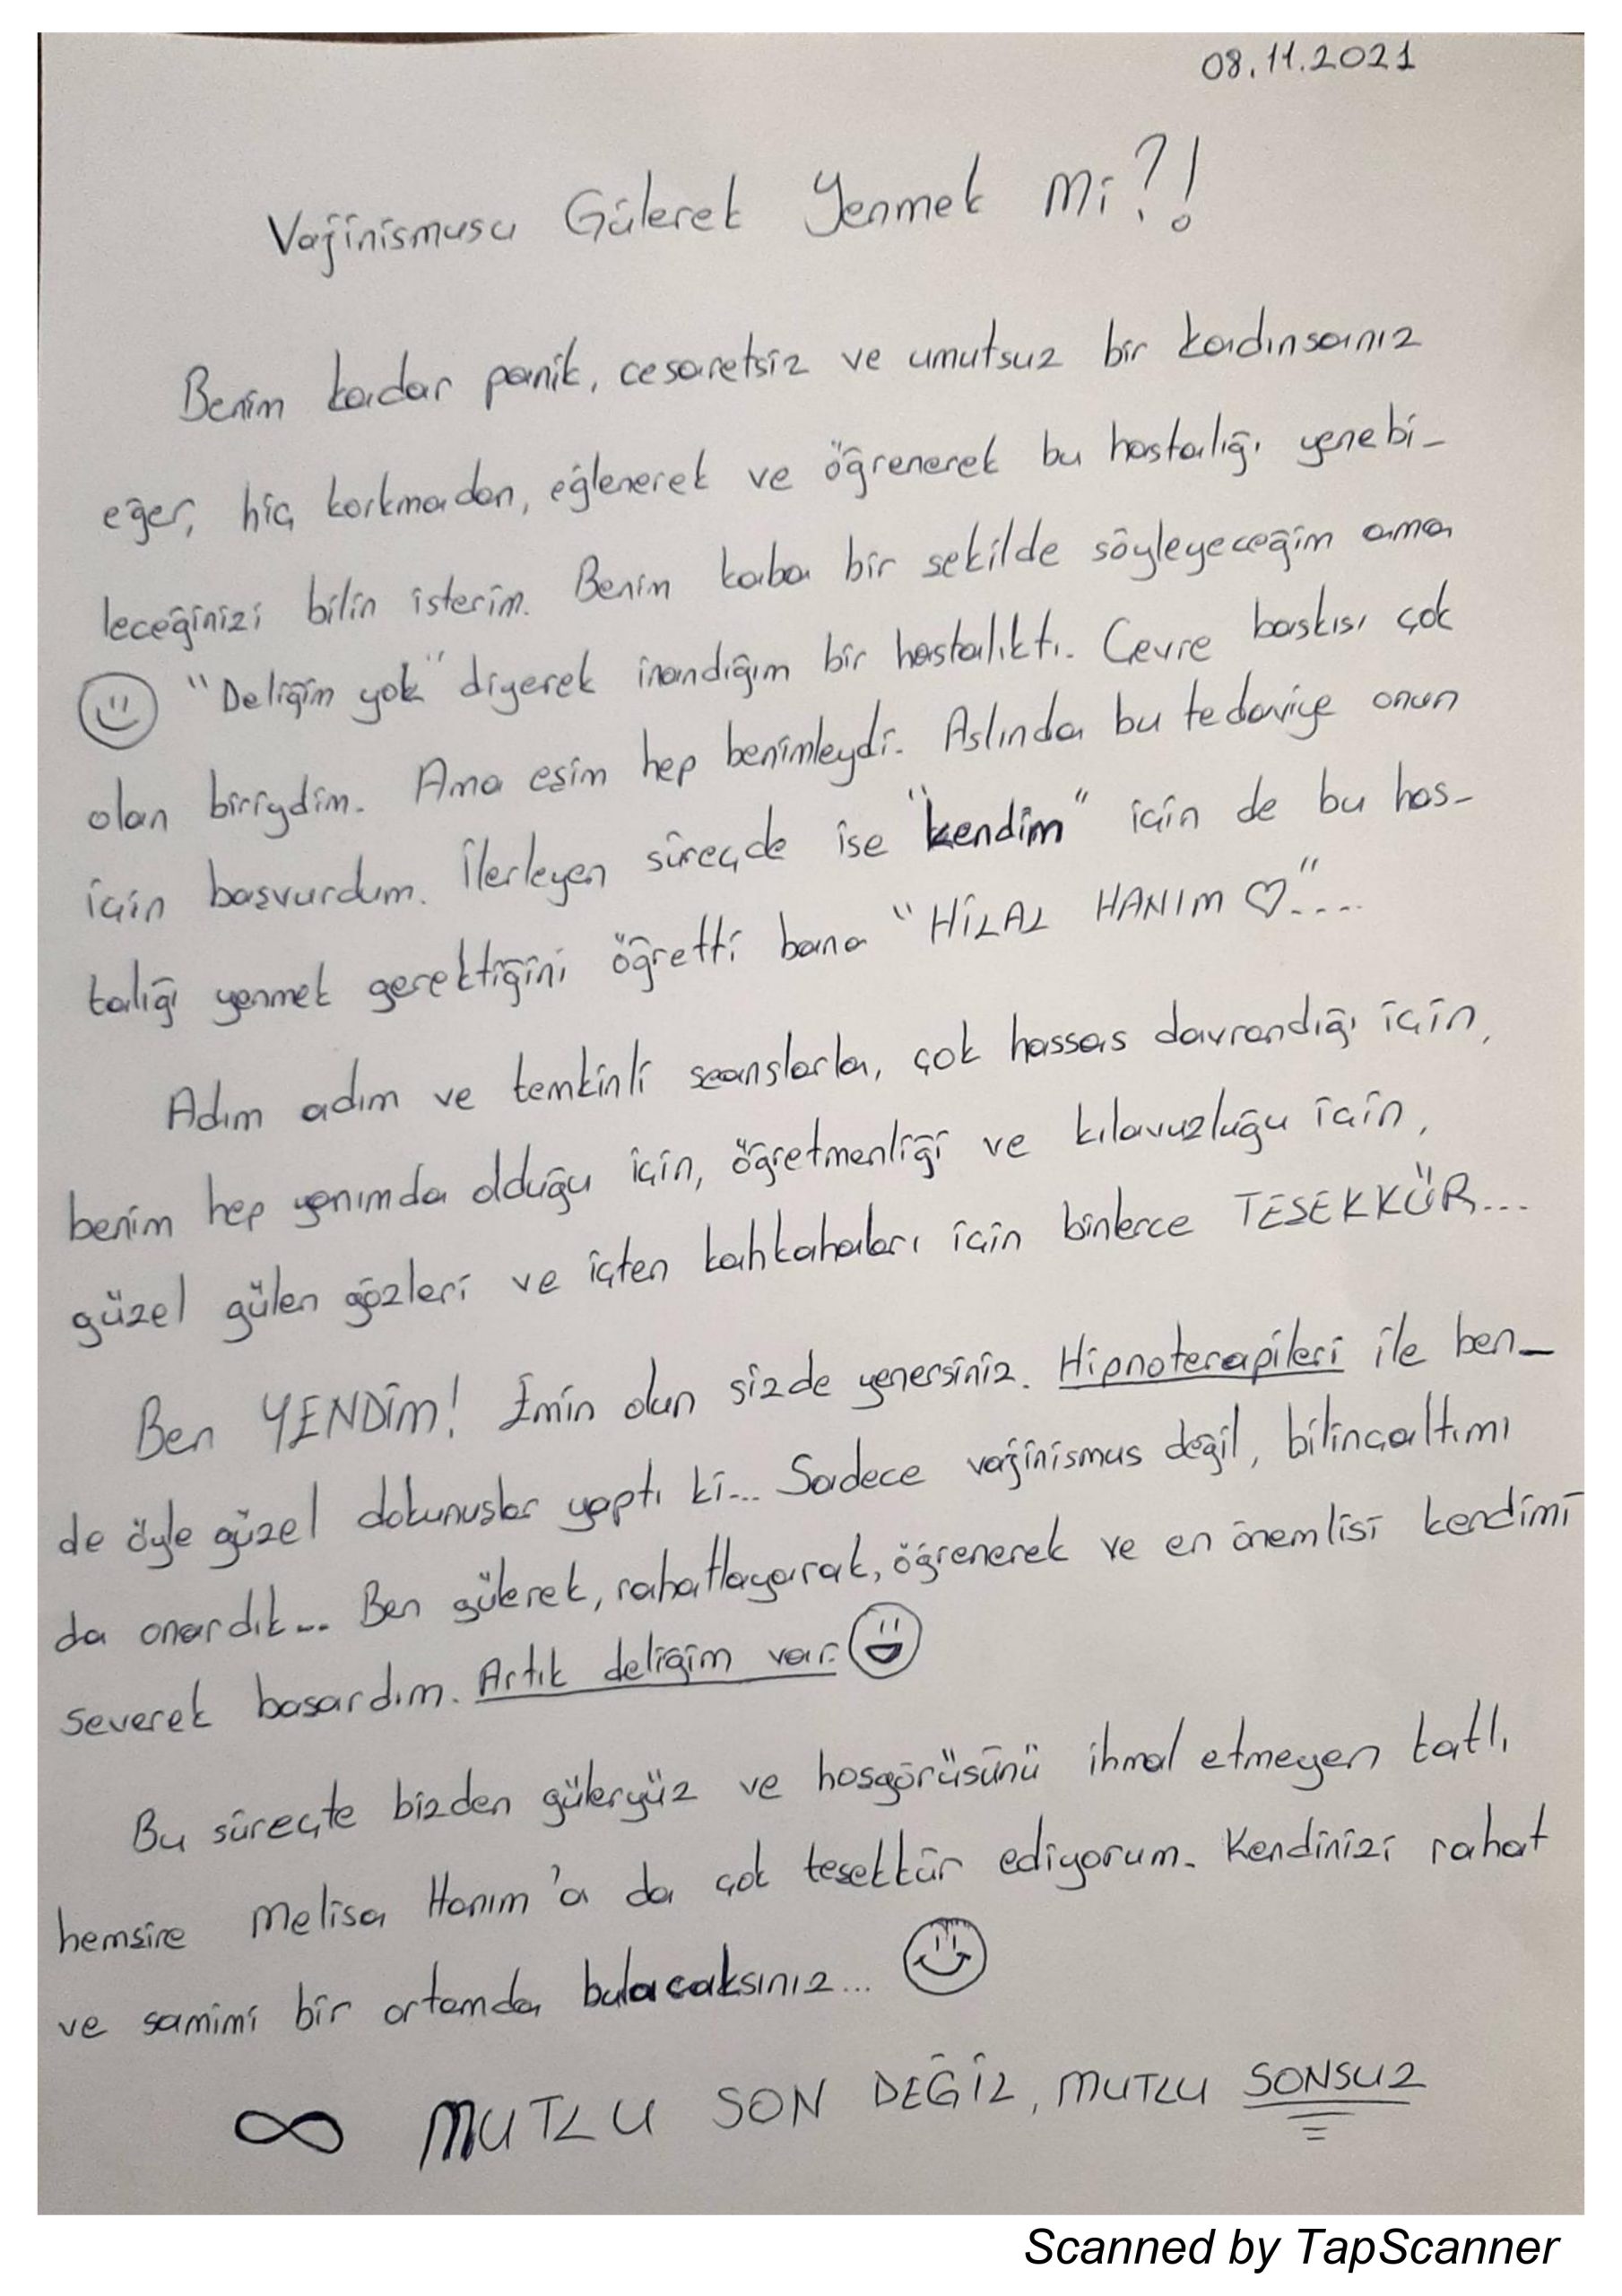 08.11.2021
Vajinismusu Gülerek Yenmek Mi?!
Benim kadar panik, cesaretsiz ve umutsuz bir kadınsanız
eğer, hiç korkmadan, eğlenerek ve öğrenerek bu hastalığı yenebi-
leceğinizi bilin isterim. Benim kaba bir sekilde söyleyeceğim ama
"Deliğim yok" diyerek inandığım bir hastalıktı. Çevre baskısı çok
olan biriydim. Ama eşim hep benimleydi. Aslında bu tedaviye onun
için başvurdum. İlerleyen süreçde ise "kendim" için de bu has-
talığı yenmek gerektiğini öğretti bana "HİLAL HANIM ♡"....
Adım adım ve temkinli seanslarla, çok hassas davrandığı için,
benim hep yanımda olduğu için, öğretmenliği ve kılavuzluğu için,
güzel gülen gözleri ve içten kahkahaları için binlerce TESEKKÜR...
Ben YENDİM! Emin olun sizde yenersiniz. Hipnoterapileri ile ben-
de öyle güzel dokunuslar yaptı ki... Sadece vajinismus değil, bilinçaltımı
da onardık... Ben gülerek, rahatlayarak, öğrenerek ve en önemlisi kendimi
severek basardım. Artık deliğim var.
Bu süreçte bizden güleryüz ve hosgörüsünü ihmal etmeyen tatlı
hemsire Melisa Hanım'a da çok tesekkür ediyorum. Kendinizi rahat
ve samimi bir ortamda bulacaksınız...
∞ MUTLU SON DEĞİL, MUTLU SONSUZ
Scanned by TapScanner